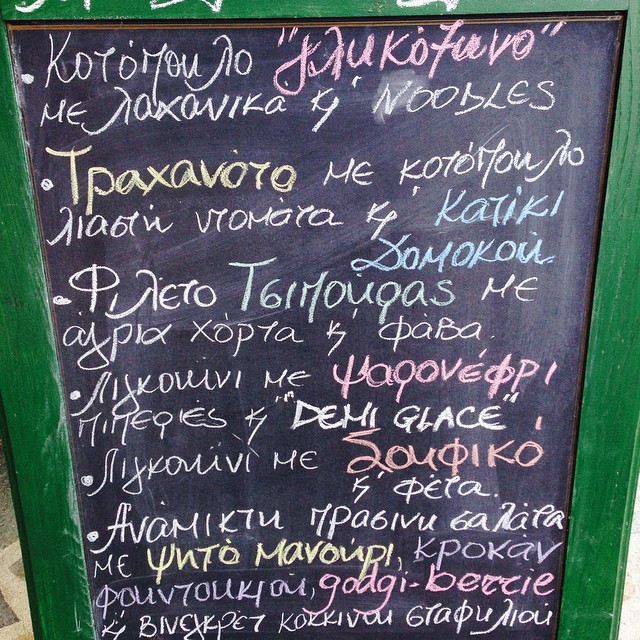 . Κοτόπουλο "γλυκόξυνο"
με λαχανικα κ' NOODLES
. Τραχανότο με κοτόπουλο
λιαστή ντομάτα κ' κατίκι
Δομοκού.
. Φιλέτο Τσιπούρας με
άγρια χόρτα κ' φάβα.
. Λιγκουίνι με ψαρονέφρι
πιπεριές κ' "DEMI GLACE"
. Λιγκουίνι με Σουφικό
κ' φέτα.
. Ανάμικτη πρασινη σαλάτα
με ψητό μανούρι, κροκάν
φουντουκιού, godgi-berrie
κ' βινεγκρέτ κόκκινου σταφυλιού